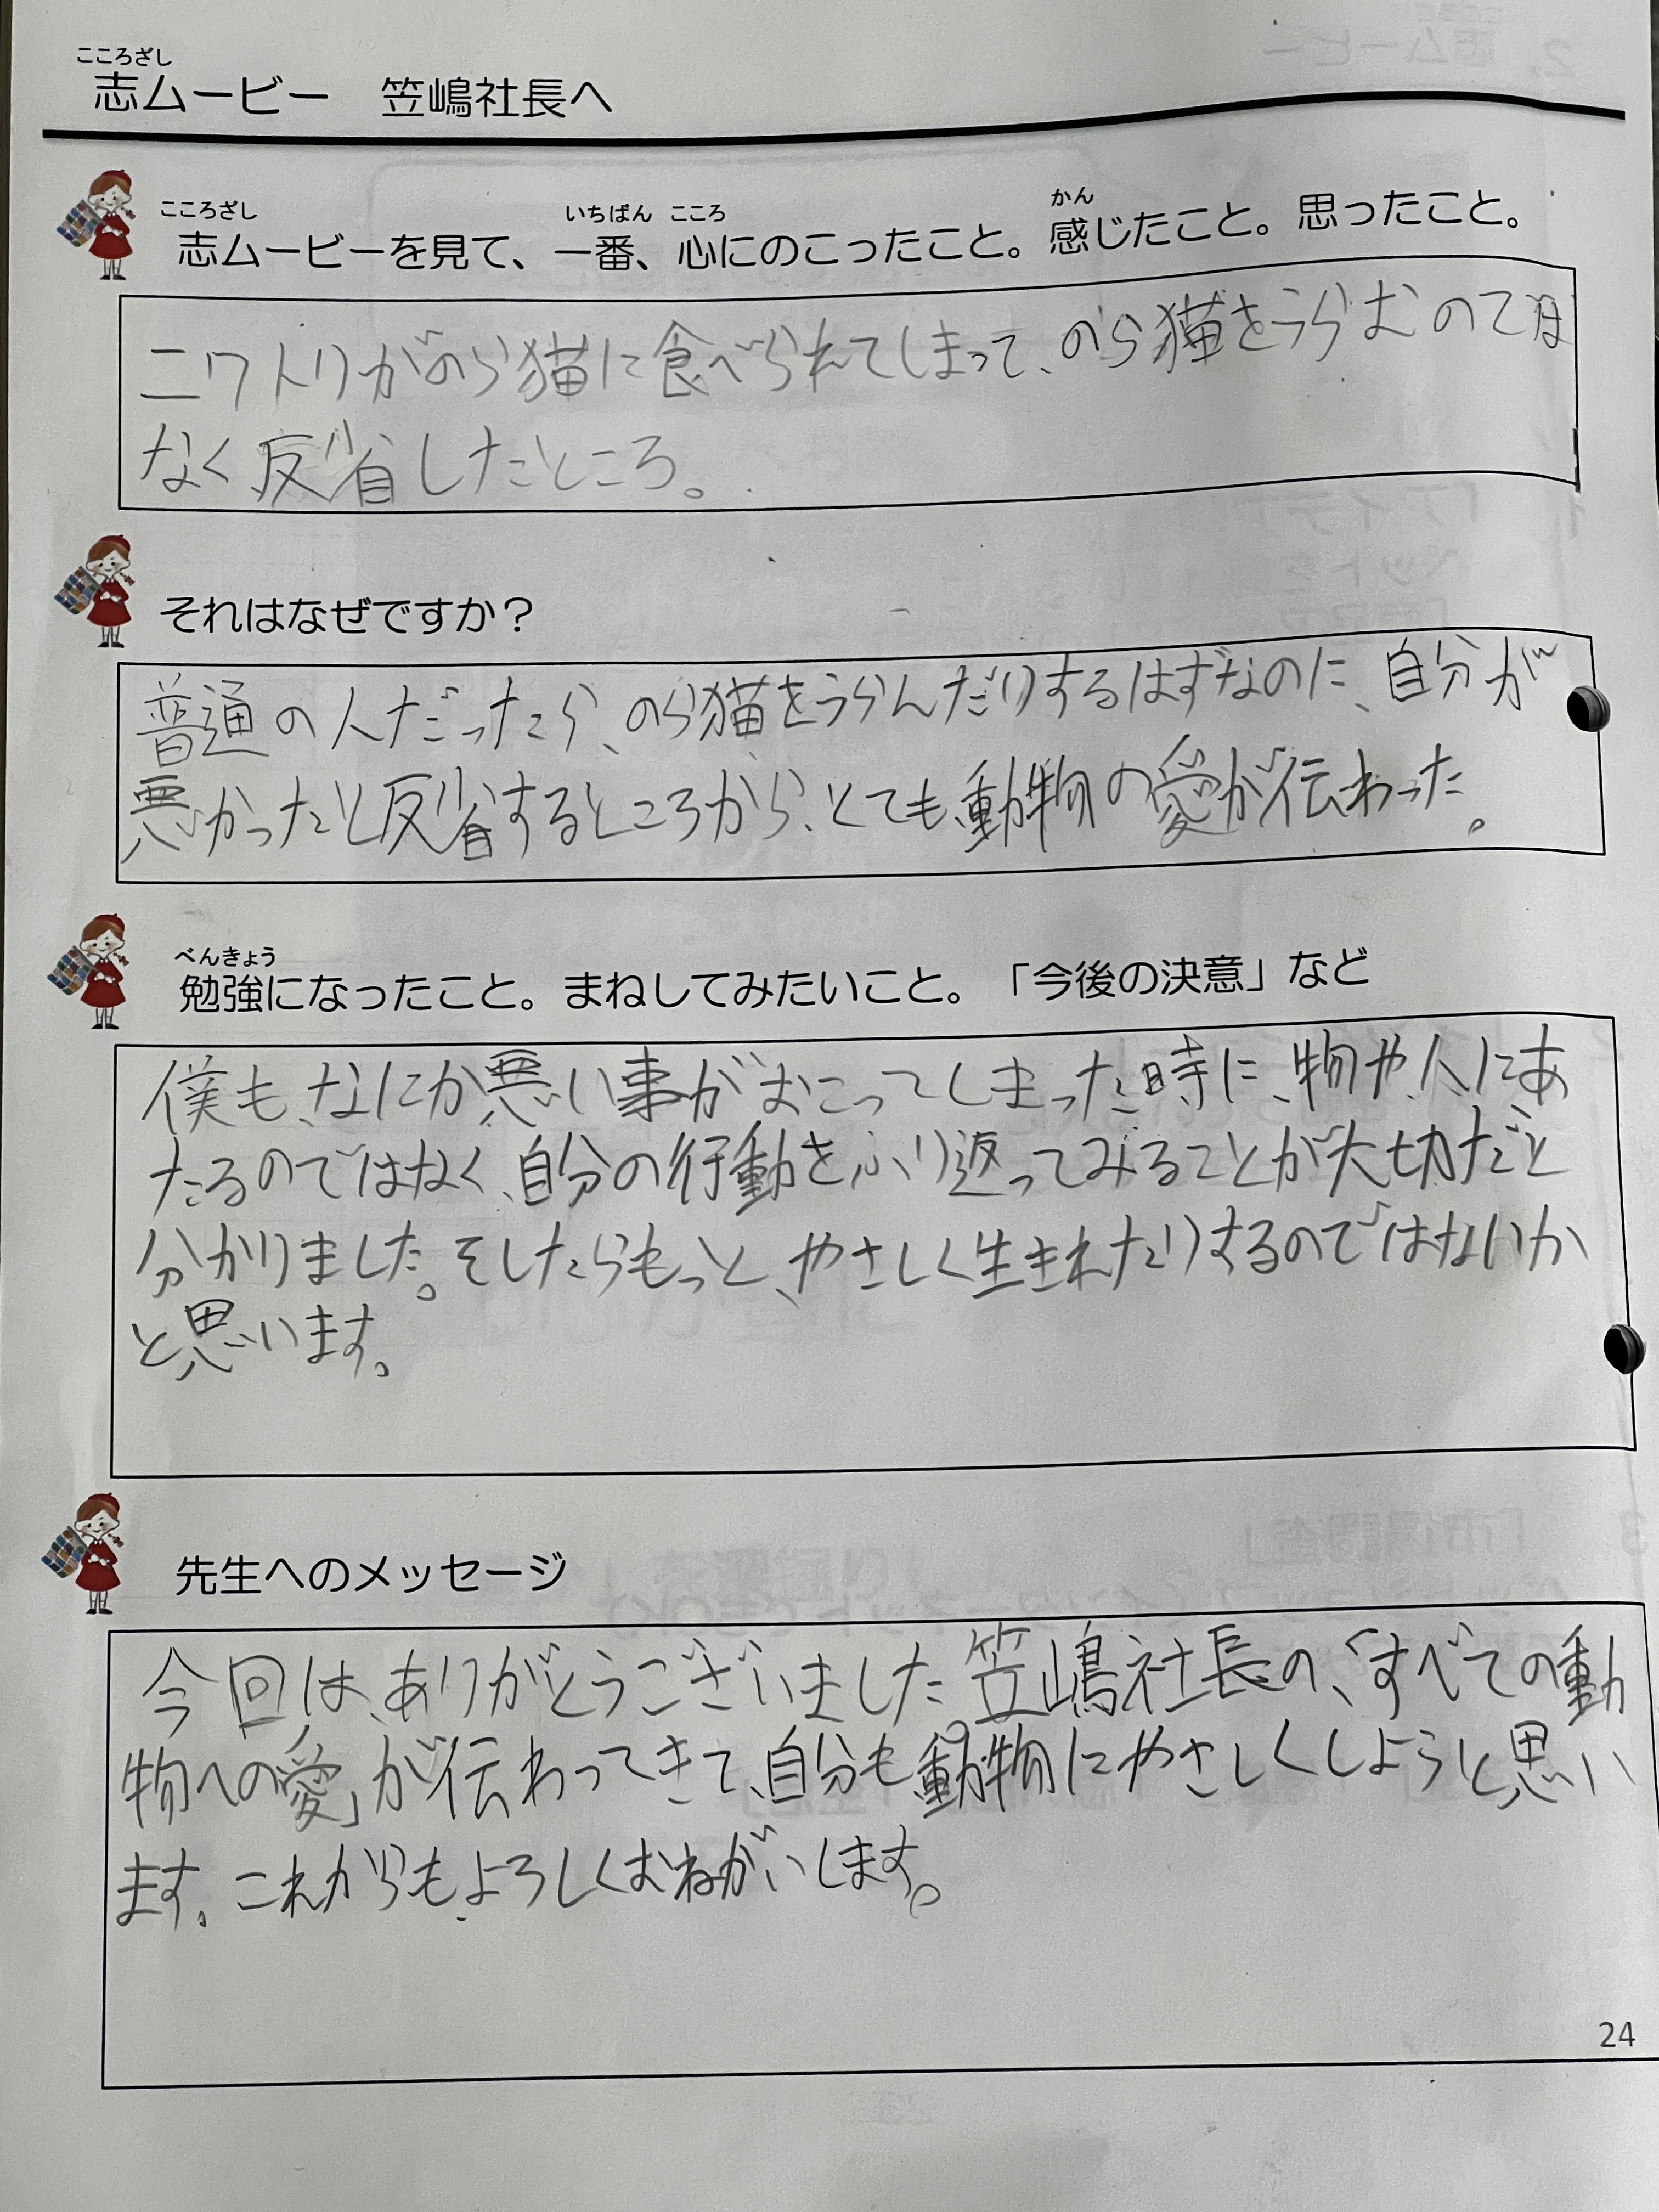 こころざし
志ムービー　笠嶋社長へ
こころざし　いちばん　こころ　かん
志ムービーを見て、一番、心にのこったこと。感じたこと。思ったこと。
ニワトリがのら猫に食べられてしまって、のら猫をうらむのでは
なく反省したところ。
それはなぜですか？
普通の人だったら、のら猫をうらんだりするはずなのに、自分が
悪かったと反省するところから、とても動物の愛が伝わった。
べんきょう
勉強になったこと。まねしてみたいこと。「今後の決意」など
僕も、なにか悪い事がおこってしまった時に、物や、人にあ
たるのではなく、自分の行動をふり返ってみることが大切だと
分かりました。そしたらもっと、やさしく生きれたりするのではないか
と思います。
先生へのメッセージ
今回は、ありがとうございました笠嶋社長の、「すべての動
物への愛」が伝わってきて、自分も動物にやさしくしようと思い
ます。これからもよろしくおねがいします。
24